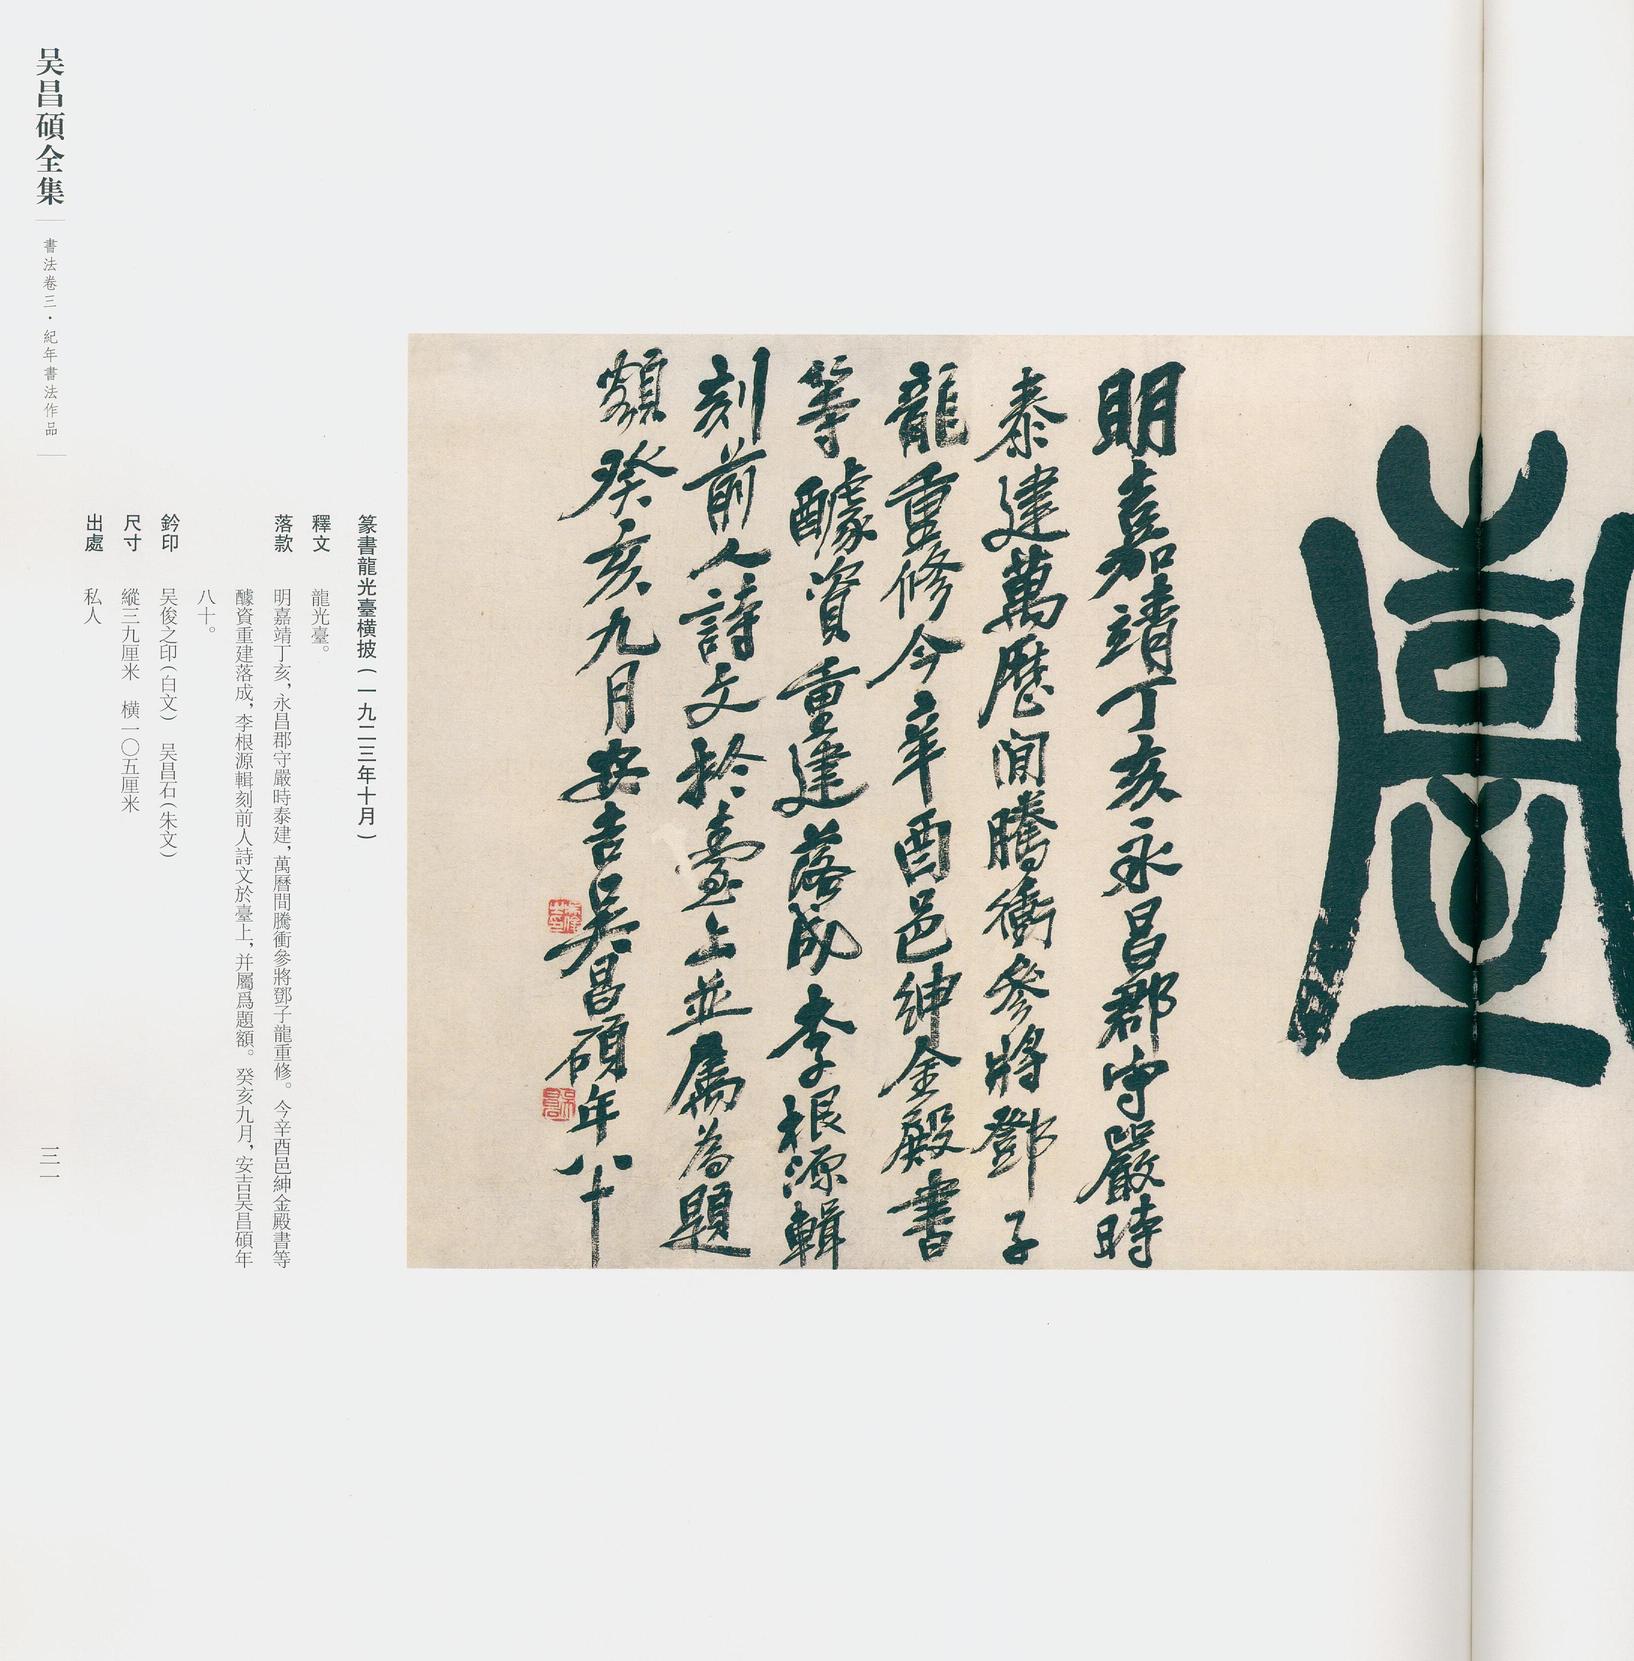 臺
明嘉靖丁亥永昌郡守嚴時
泰建萬曆間騰衝參將鄧子
龍重修今辛酉邑紳金殿書
等醵資重建落成李根源輯
刻前人詩文於臺上並屬為題
額癸亥九月安吉吳昌碩年八十
篆書龍光臺橫披(一九二三年十月)
釋文 龍光臺。
落款 明嘉靖丁亥,永昌郡守嚴時泰建,萬曆間騰衝參將鄧子龍重修。今辛酉邑紳金殿書等
醵資重建落成,李根源輯刻前人詩文於臺上,并屬爲題額。癸亥九月,安吉吴昌碩年
八十。
鈐印 吴俊之印(白文) 吴昌石(朱文)
尺寸 縱三九厘米 橫一〇五厘米
出處 私人
吴昌碩全集
書法卷三·紀年書法作品
三一一